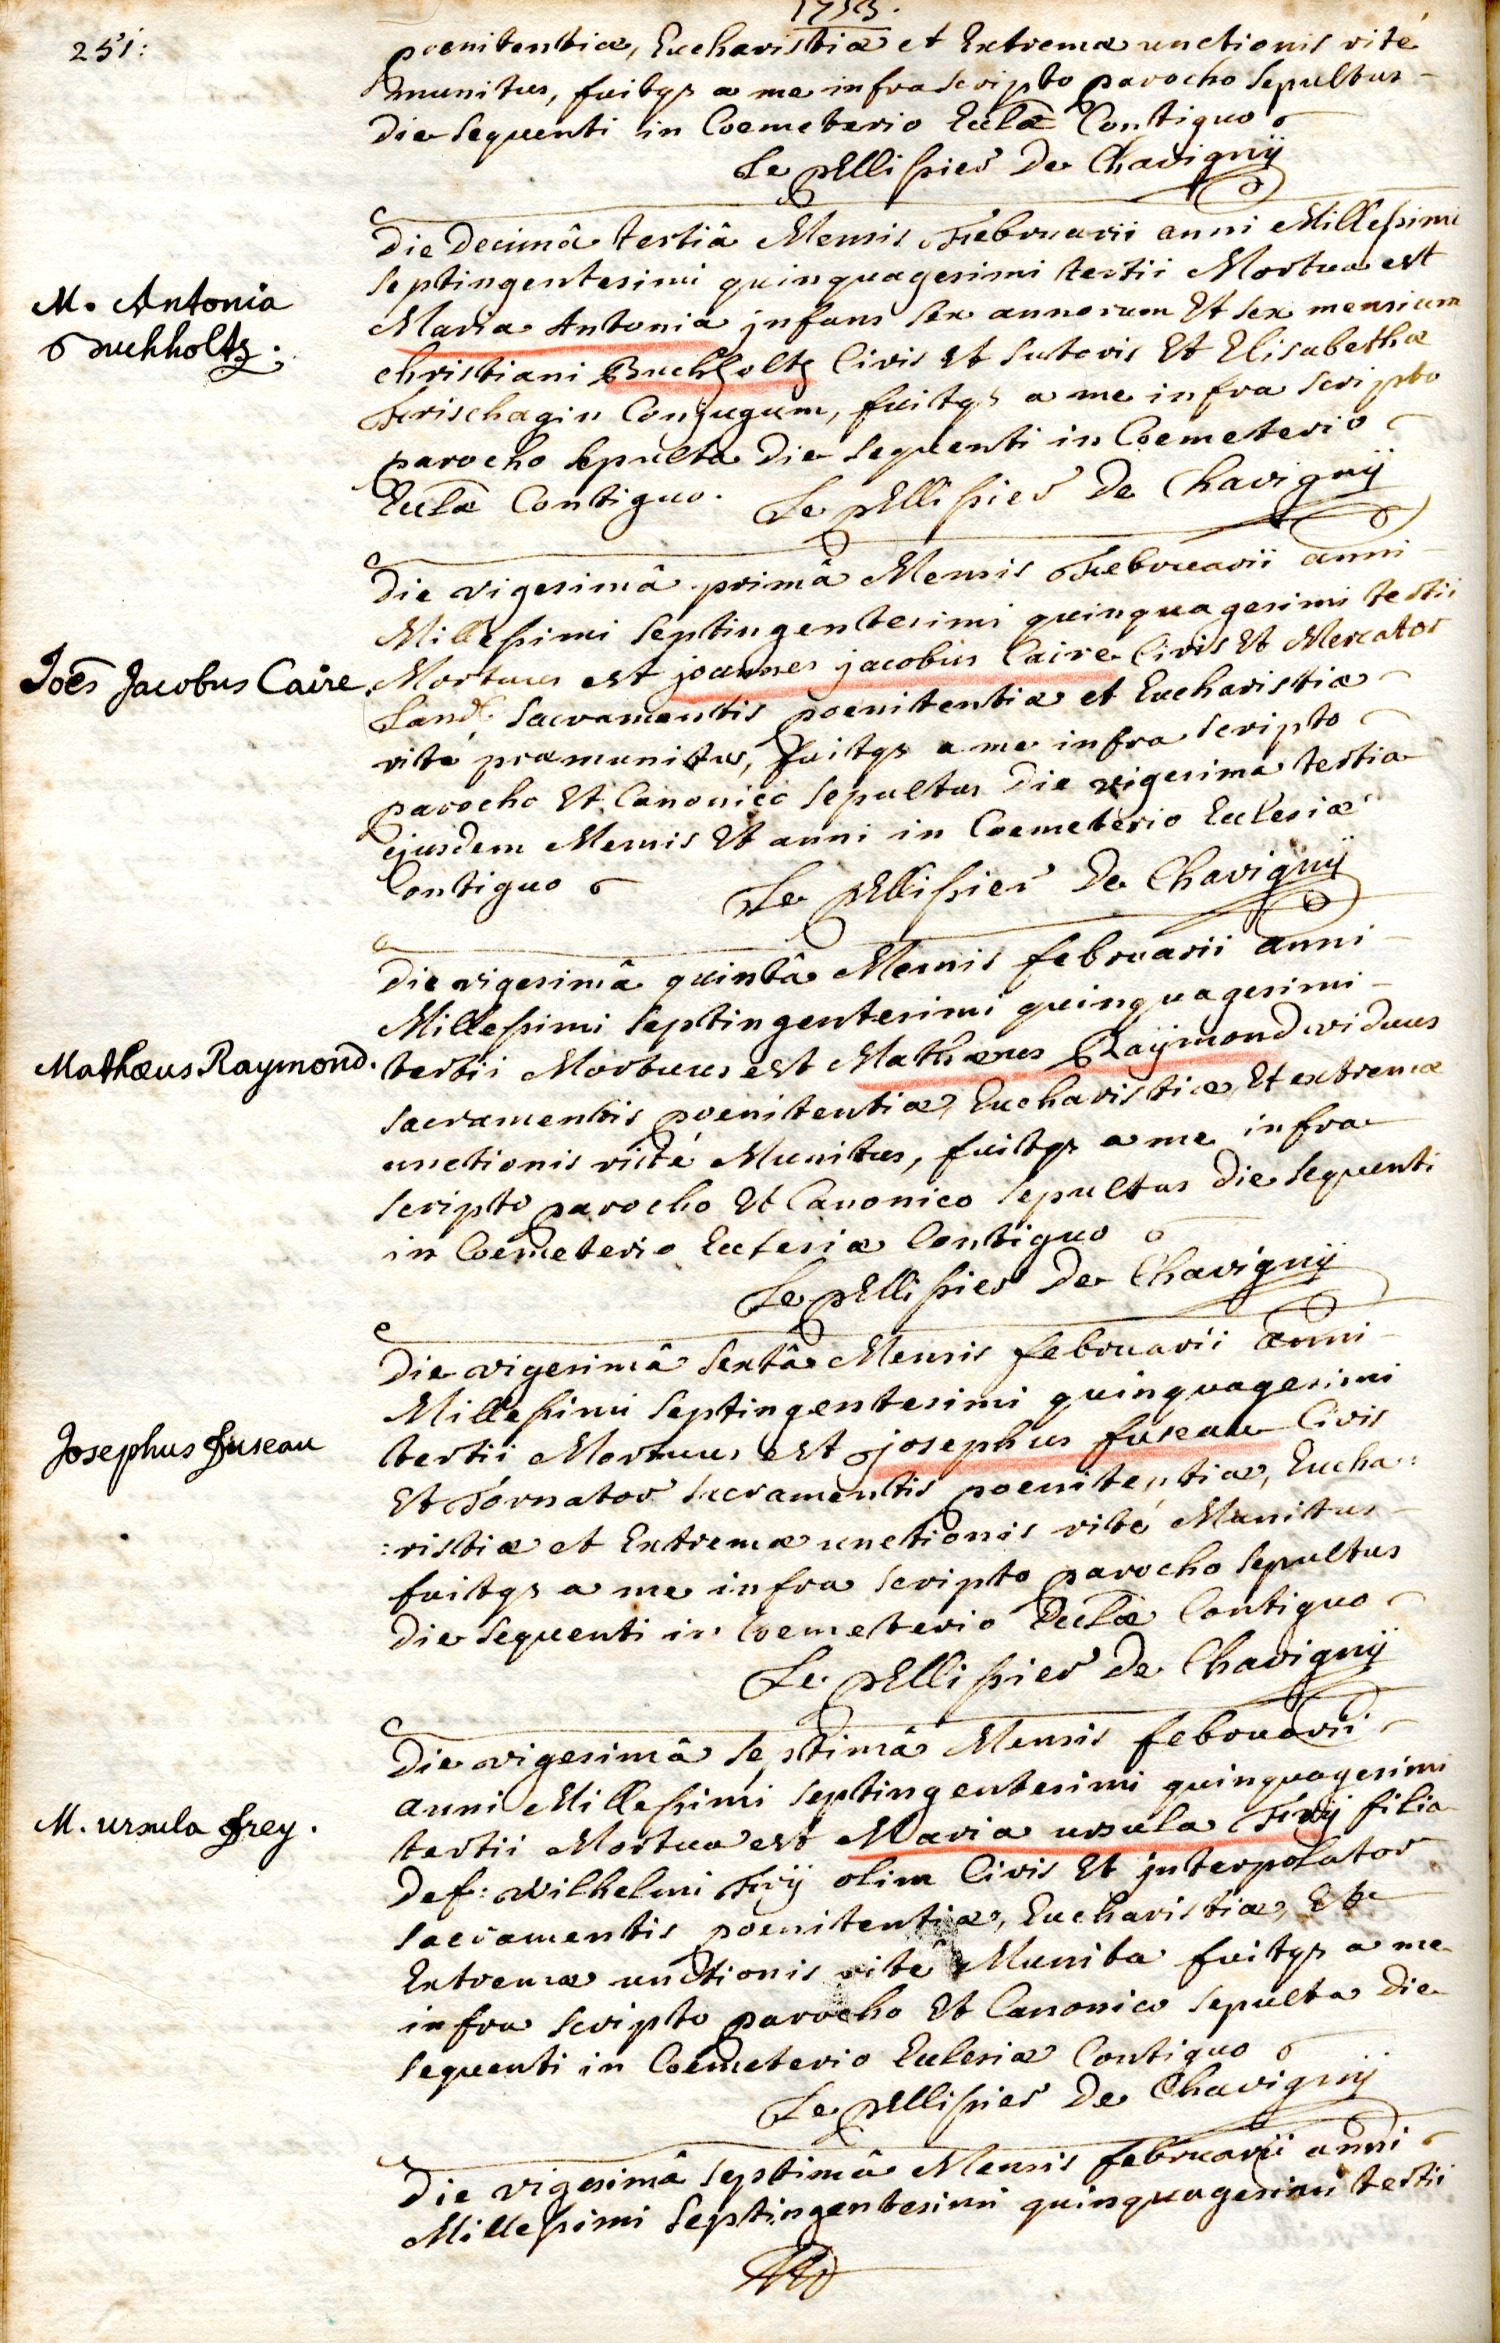 1753.
251:
poenitentiæ, Eucharistiæ et Extremæ unctionis rité
munitus, fuitqs a me infra scripto parocho sepultus
die sequenti in Coemeterio Eccläe Contiguo
Le pEllissier De Chavignÿ
Die Decimâ tertiâ Mensis Februarii anni Millesimi
septingentesimi quinquagesimi tertii Mortua est
M. Antonia
Buchholtz.
Maria Antonia infans sex annorum Et sex mensium
christiani Buchholtz Civis Et sutoris Et Elisabethæ
Frischagin Conjugum, fuitqs a me infra scripto
parocho sepulta Die sequenti in Coemeterio
Eccläe Contiguo. Le pEllissier De Chavignÿ
Die vigesimâ primâ Mensis Februarii anni
Millesimi septingentesimi quinquagesimi tertii
Joes̄ Jacobus Caire.
Mortuus est joannes jacobus Caire Civis Et Mercator
Land: sacramentis poenitentiæ et Eucharistiæ
rité præmunitus, fuitqs a me infra scripto
parocho Et Canonico sepultus Die vigesima tertia
ejusdem Mensis Et anni in Coemeterio Ecclesiæ
Contiguo Le pEllissier De Chavignÿ
Die vigesimâ quintâ Mensis februarii anni
Millesimi septingentesimi quinquagesimi
Mathæus Raymond.
tertii Mortuus est Mathæus Raÿmond viduus
sacramentis poenitentiæ, Eucharistiæ, Et extremæ
unctionis rité Munitus, fuitqs a me infra
scripto parocho Et Canonico sepultus Die sequenti
in Coemeterio Ecclesiæ Contiguo
Le pEllissier De Chavignÿ
Die vigesimâ sextâ Mensis februarii anni
Millesimi septingentesimi quinquagesimi
Josephus Fuseau
tertii Mortuus est josephus fuseau Civis
Et Tornator sacramentis poenitentiæ, Eucha:
:ristiæ et Extremæ unctionis rité Munitus
fuitqs a me infra scripto parocho sepultus
Die sequenti in Coemeterio Eccläe Contiguo
Le pEllissier De Chavignÿ
Die vigesimâ septimâ Mensis februarii
anni Millesimi septingentesimi quinquagesimi
M. ursula Frey.
tertii Mortua est Maria ursula Freÿ filia
Def: Wilhelmi Freÿ olim Civis Et interpolator
sacramentis poenitentiæ, Eucharistiæ, Et
Extremæ unctionis rité Munita fuitqs a me
infra scripto parocho Et Canonico sepulta Die
sequenti in Coemeterio Ecclesiæ Contiguo
Le pEllissier De Chavignÿ
Die vigesimâ septimâ Mensis februarii anni
Millesimi septingentesimi quinquagesimi tertii